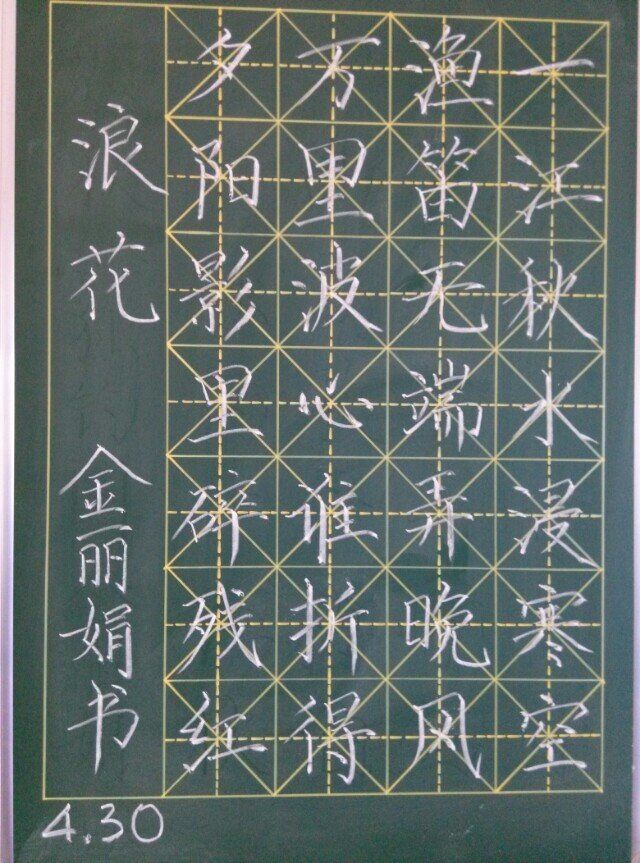 一江秋水浸寒空
渔笛无端弄晚风
万里波心谁折得
夕阳影里碎残红
浪花 金丽娟书
4.30